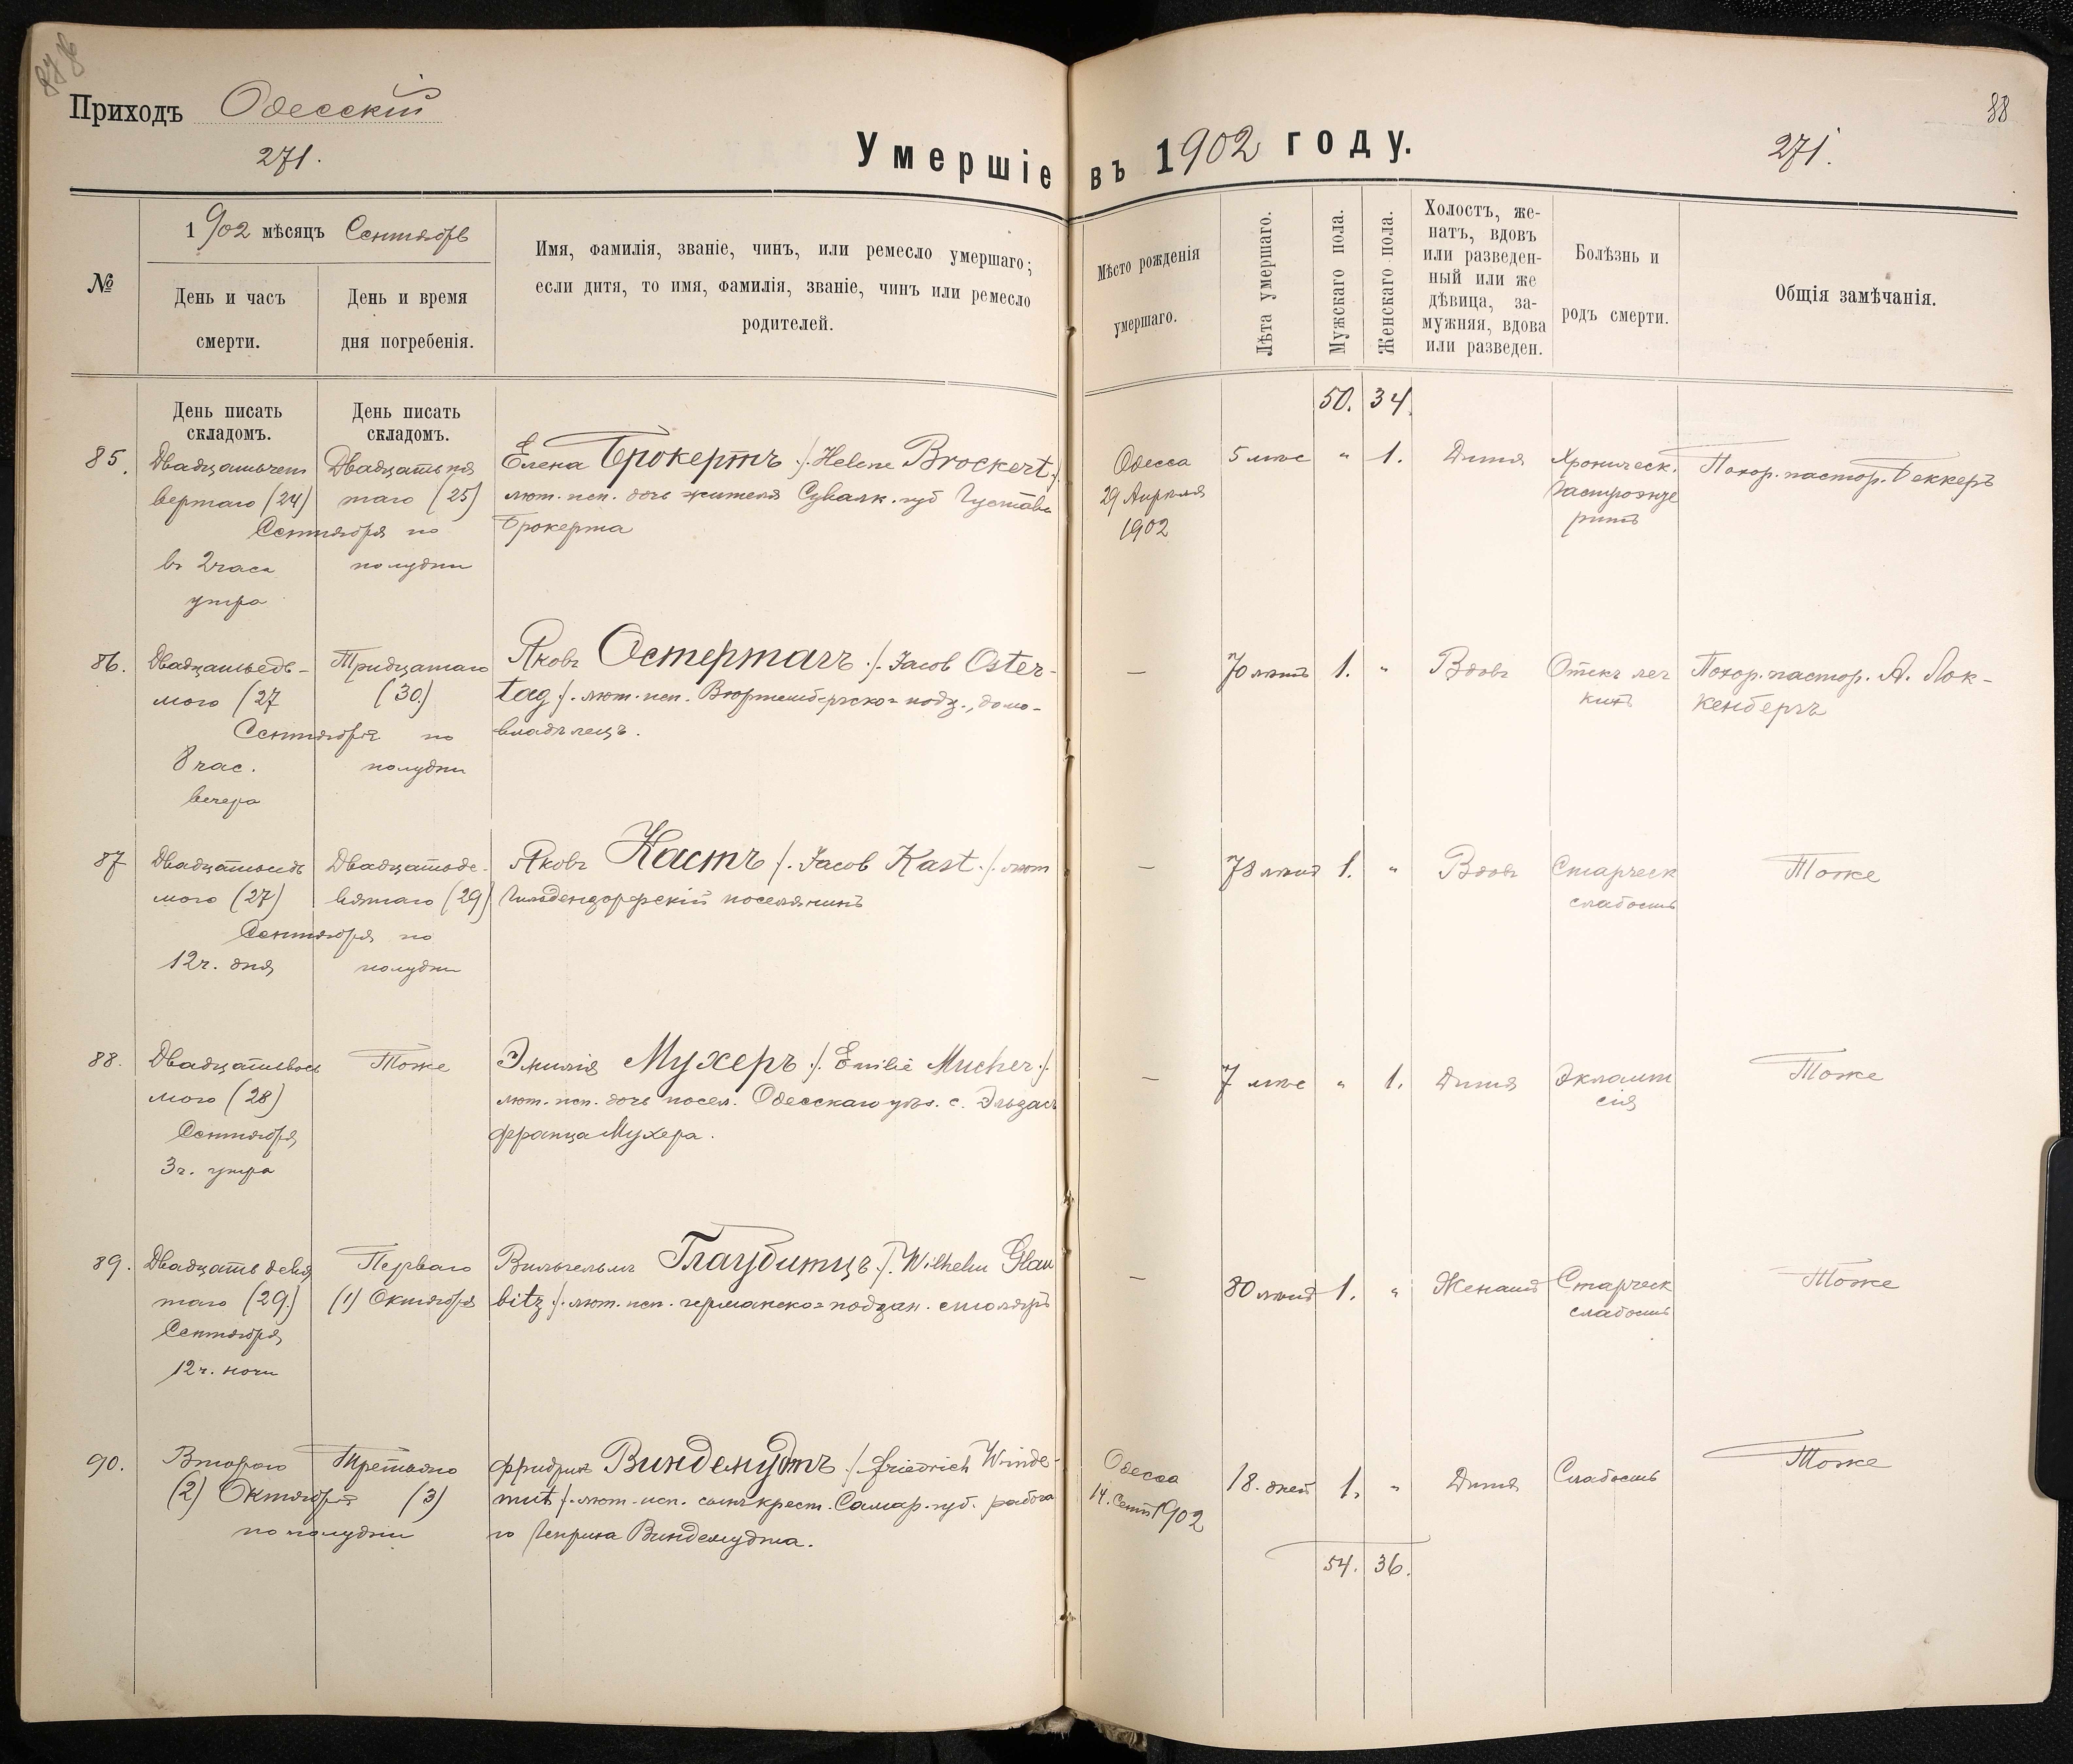 87
Приходъ Одесскій
88
271.
Умершіе въ 1902 году.
271.
№
1902 мѣсяцъ Сентябрь
День и часъ
смерти.
День и время
дня погребенія.
Имя, фамилія, званіе, чинъ, или ремесло умершаго;
если дитя, то имя, фамилія, званіе, чинъ или ремесло
родителей.
Мѣсто рожденія
умершаго.
Лѣта умершаго.
Мужскаго пола.
Женскаго пола.
Холостъ, же-
натъ, вдовъ
или разведен-
ный или же
дѣвица, за-
мужняя, вдова
или разведен.
Болѣзнь и
родъ смерти.
Общія замѣчанія.
День писать
складомъ.
День писать
складомъ.
50. 34.
85.
Двадцатьчет
вертаго (24)
Сентября
въ 2 часа
утра
Двадцать пя
таго (25)
по
полудни
Елена Брокертъ /. Helene Brockert ./
лют. исп. дочь жителя Сувалк. губ Густава
Брокерта
Одесса
29 Апреля
1902
5 мѣс " 1. Дитя
Хроническ.
Гастроэнте
ритъ
Похор. пастор. Беккеръ
86.
Двадцатьседь-
мого (27
Сентября
8 час.
вечера
Тридцатаго
(30.)
по
полудни
Яковъ Остертагъ /. Jacob Oster-
tag /. лют. исп. Вюртембергско= подд., домо-
владѣлецъ.
— 70 лѣтъ 1. " Вдовъ
Отекъ лег
кихъ
Похор. пастор. А. Лок-
кенбергъ
87
Двадцатьседь
мого (27)
Сентября
12 ч. дня
Двадцатьде-
вятаго (29)
по
полудни
Яковъ Кастъ /. Jacob Kast ./ лют
Гильдендорфскій поселянинъ
— 78 лѣтъ 1. " Вдовъ
Старческ
слабость
Тоже
88.
Двадцатьвось
мого (28)
Сентября
3 ч. утра
Тоже
Эмилія Мухеръ /. Emilie Mucher ./
лют. исп. дочь посел. Одесскаго уѣз. с. Эльзасъ
Франца Мухера.
— 7 мѣс " 1. Дитя
Эклампсія
Тоже
89.
Двадцать девя
таго (29.)
Сентября
12 ч. ночи
Перваго
(1) Октября
Вильгельмъ Глаубитцъ /. Wilhelm Glau
bitz /. лют. исп. германско= поддан. столяръ
— 80 лѣтъ 1. " Женатъ
Старческ
слабость
Тоже
90.
Второго
(2) Октября
Третьяго
(3)
по полудни
Фридрихъ Виндемудтъ /. Friedrich Winde-
mut /. лют. исп. сынъ крест. Самар. губ. рабоча
го Генриха Виндемудта.
Одесса
14. Сент 1902
18. дней 1. " Дитя Слабость Тоже
54. 36.